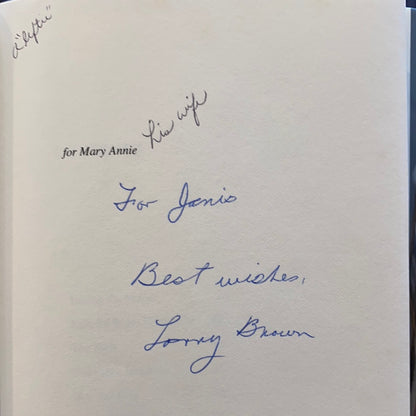 his wife
for Mary Annie
For Janis
Best wishes,
Larry Brown